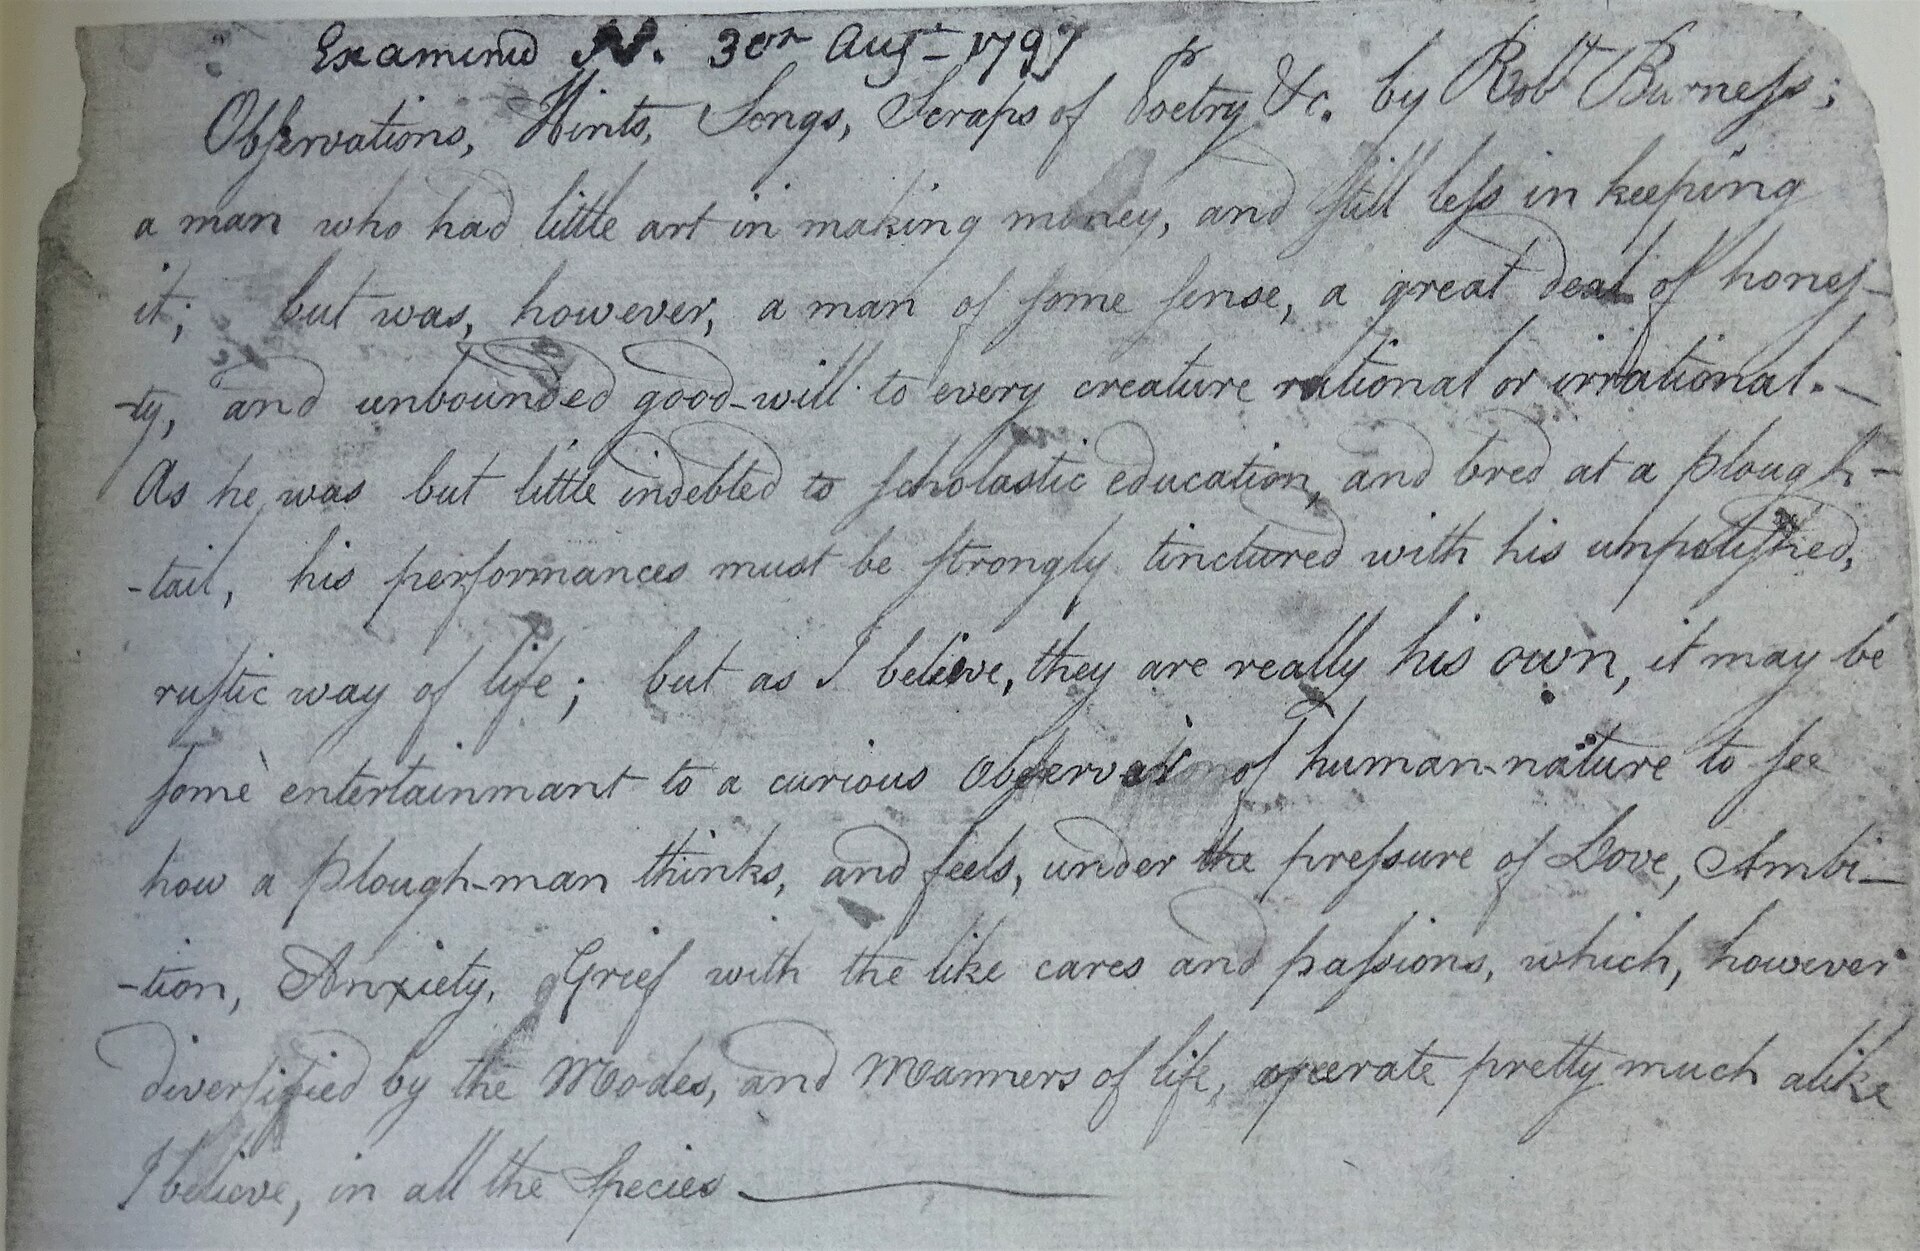 Examined N. 30th Augt 1797
Obſervations, Hints, Songs, Scraps of Poetry &c. by Robt Burneſs;
a man who had little art in making money, and ſtill leſs in keeping
it; but was, however, a man of ſome ſense, a great deal of honeſ-
-ty, and unbounded good-will to every creature rational or irrational. —
As he was but little indebted to ſcholastic education, and bred at a plough-
-tail, his performances must be ſtrongly tinctured with his unpoliſhed,
ruſtic way of life; but as I believe, they are really his own, it may be
ſome entertainmant to a curious obſerver of human-nature to ſee
how a plough-man thinks, and feels, under the preſsure of Love, Ambi-
-tion, Anxiety, Grief with the like cares and paſsions, which, however
diverſified by the Modes, and Manners of life, operate pretty much alike
I believe, in all the Species